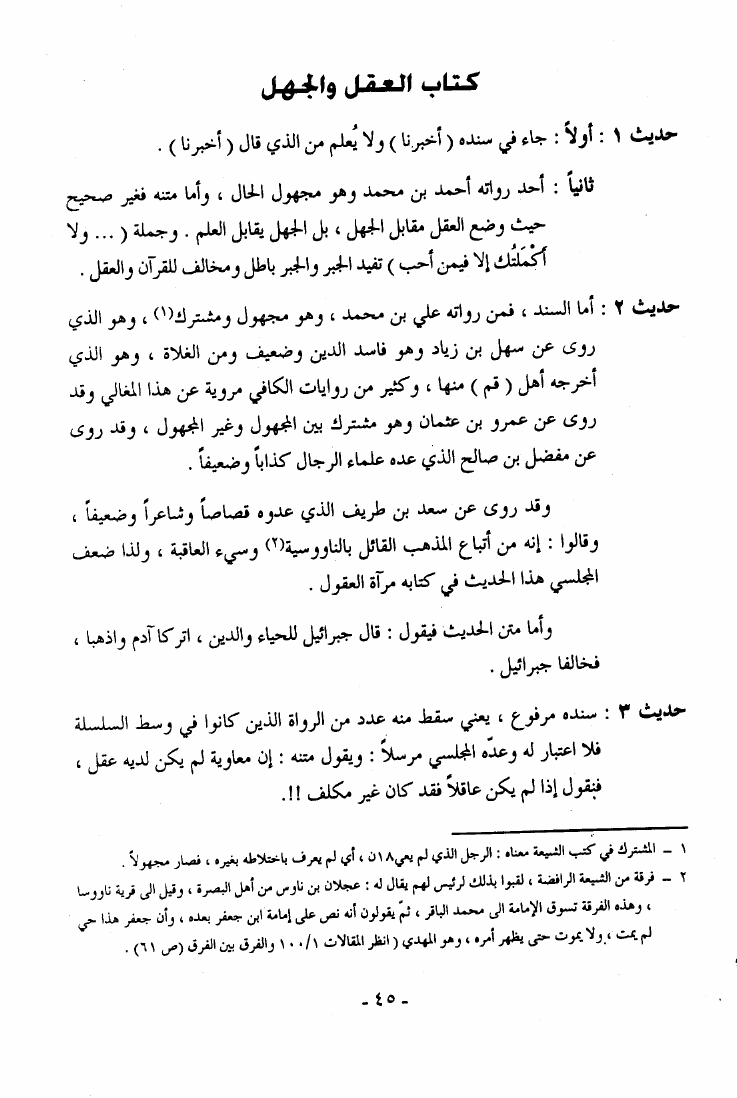 كتاب العقل والجهل
حديث ١ : أولاً : جاء في سنده ( أخبرنا ) ولا يُعلم من الذي قال ( أخبرنا ) .
ثانياً : أحد رواته أحمد بن محمد وهو مجهول الحال ، وأما متنه فغير صحيح
حيث وضع العقل مقابل الجهل ، بل الجهل يقابل العلم . وجملة ( ... ولا
أَكْمَلتُك إلا فيمن أحب ) تفيد الجبر والجبر باطل ومخالف للقرآن والعقل .
حديث ٢ : أما السند ، فمن رواته علي بن محمد ، وهو مجهول ومشترك(١) ، وهو الذي
روى عن سهل بن زياد وهو فاسد الدين وضعيف ومن الغلاة ، وهو الذي
أخرجه أهل ( قم ) منها ، وكثير من روايات الكافي مروية عن هذا المغالي وقد
روى عن عمرو بن عثمان وهو مشترك بين المجهول وغير المجهول ، وقد روى
عن مفضل بن صالح الذي عده علماء الرجال كذاباً وضعيفاً .
وقد روى عن سعد بن طريف الذي عدوه قصاصاً وشاعراً وضعيفاً ،
وقالوا : إنه من أتباع المذهب القائل بالناووسية(٢) وسيء العاقبة ، ولذا ضعف
المجلسي هذا الحديث في كتابه مرآة العقول .
وأما متن الحديث فيقول : قال جبرائيل للحياء والدين ، اتركا آدم واذهبا ،
فخالفا جبرائيل .
حديث ٣ : سنده مرفوع ، يعني سقط منه عدد من الرواة الذين كانوا في وسط السلسلة
فلا اعتبار له وعدّه المجلسي مرسلاً : ويقول متنه : إن معاوية لم يكن لديه عقل ،
فنقول إذا لم يكن عاقلاً فقد كان غير مكلف !!.
١ – المشترك في كتب الشيعة معناه : الرجل الذي لم يعي١٨ن ، أي لم يعرف باختلاطه بغيره ، فصار مجهولاً .
٢ – فرقة من الشيعة الرافضة ، لقبوا بذلك لرئيس لهم يقال له : عجلان بن ناوس من أهل البصرة ، وقيل الى قرية ناووسا
، وهذه الفرقة تسوق الإمامة الى محمد الباقر ، ثمّ يقولون أنه نص على إمامة ابن جعفر بعده ، وأن جعفر هذا حي
لم يمت ، ولا يموت حتى يظهر أمره ، وهو المهدي ( انظر المقالات ١٠٠/١ والفرق بين الفرق (ص ٦١) .
- ٤٥ -